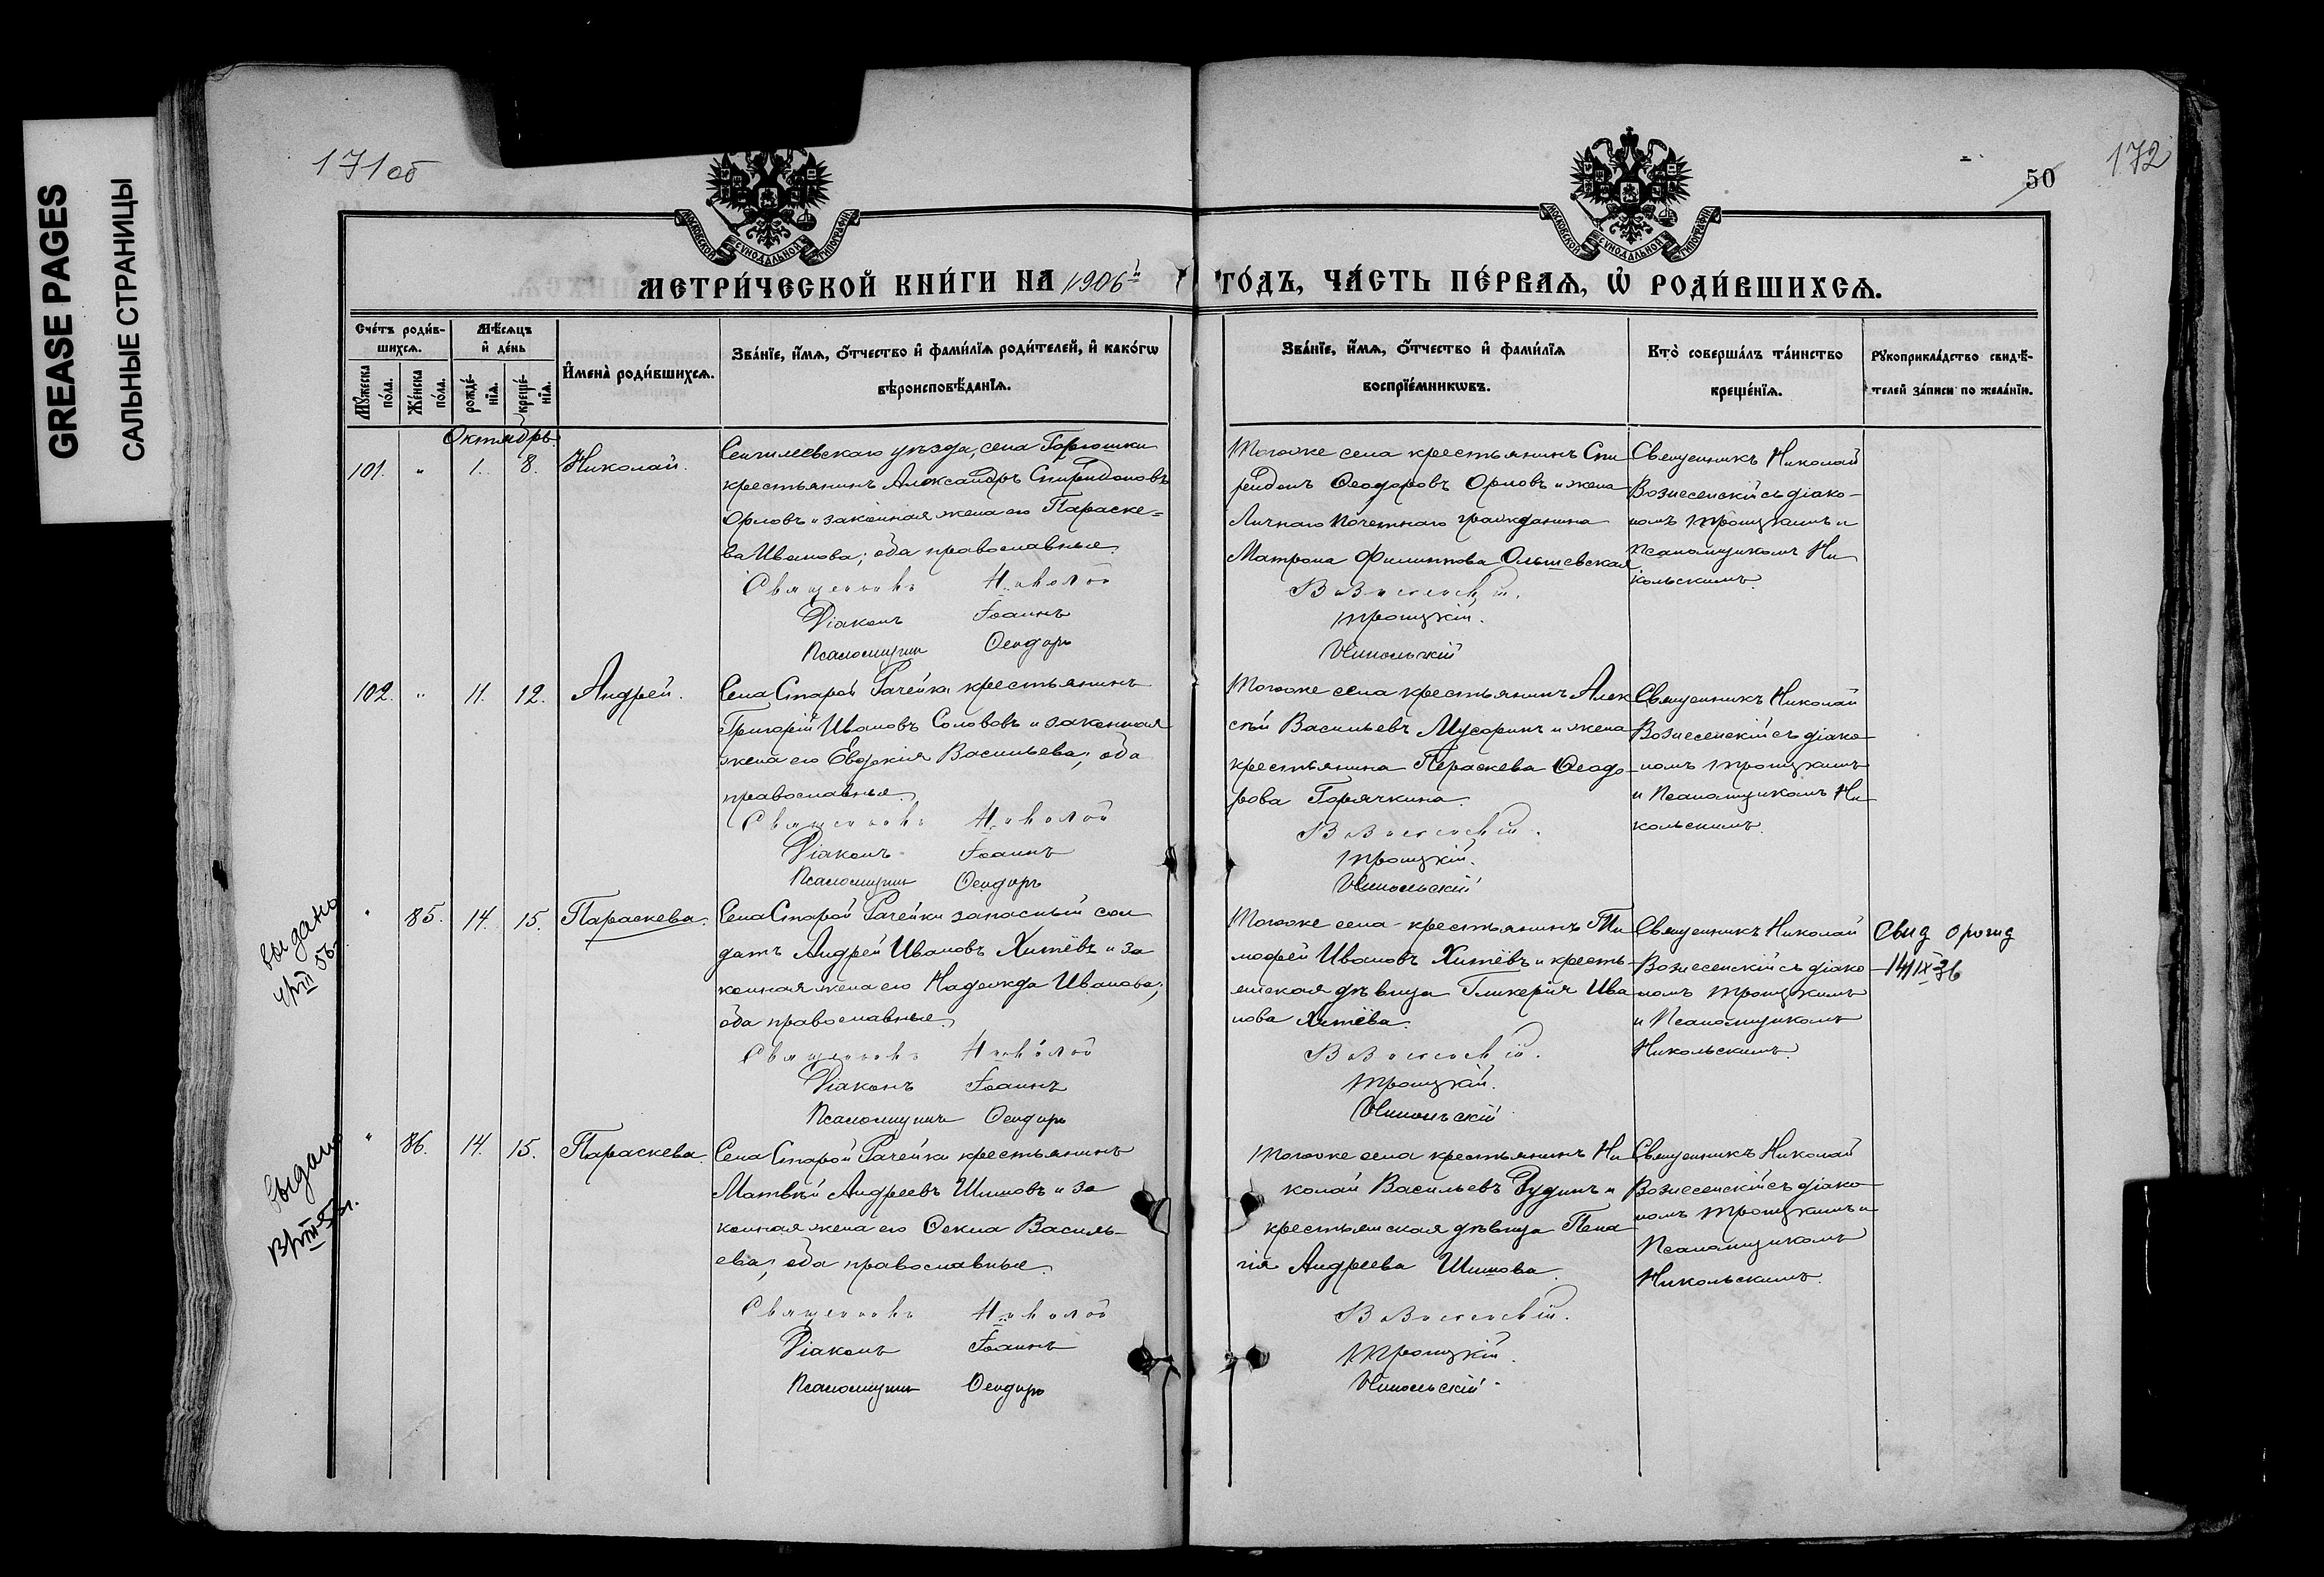 GREASE PAGES
САЛЬНЫЕ СТРАНИЦЫ
171об
172
50
МОСКОВСКОЙ СѴНОДАЛЬНОЙ ТИПОГРАФІИ
МОСКОВСКОЙ СѴНОДАЛЬНОЙ ТИПОГРАФІИ
МЕТРИ́ЧЕСКОЙ КНИ́ГИ НА 1906й
ГО́ДЪ, ЧА́СТЬ ПЕ́РВАѦ, Ѡ҆ РОДИ́ВШИХСѦ.
Сче́тъ роди́в-
шихсѧ.
Мѣ́сѧцъ
и҆ де́нь
И҆мена̀ роди́вшихсѧ.
Зва́нїе, и҆́мѧ, ѻ҆́тчество и҆ фами́лїѧ роди́телей, и҆ како́гѡ
вѣроисповѣ́данїѧ.
Мꙋ́жеска по́ла.
Же́нска по́ла.
рожде́-
нїѧ.
креще́-
нїѧ.
Зва́нїе, и҆́мѧ, ѻ҆́тчество и҆ фами́лїѧ
воспрїе́мникѡвъ.
Кто̀ соверша́лъ та́инство
креще́нїѧ.
Рꙋкоприкла́дство свидѣ́-
телей за́писи по жела́нїю.
Октябрь
101. " 1. 8. Николай.
Сенгилеевскаго уѣзда, села Горюшки
крестьянинъ Александръ Спиридоновъ
Орловъ и законная жена его Параске=
ва Иванова; оба православные.
Священникъ Николай
Діаконъ Іоаннъ
Псаломщик Ѳеодоръ
Того же села крестьянинъ Спи
ридонъ Ѳеодоровъ Орловъ и жена
Личнаго Почетнаго гражданина
Матрона Филиппова Ольшевская
Вознесенскій.
Троицкій.
Никольскій
Священникъ Николай
Вознесенскій съ діако-
номъ Троицкимъ и
Псаломщикомъ Ни
кольскимъ.
102. " 11. 12. Андрей.
Села Старой Рачейки крестьянинъ
Григорій Ивановъ Солововъ и законная
жена его Евдокія Васильева; оба
православные.
Священникъ Николай
Діаконъ Іоаннъ
Псаломщик Ѳеодоръ
Того же села крестьянинъ Алек
сѣй Васильевъ Мусоринъ и жена
крестьянина Параскева Ѳеодо-
рова Горячкина.
Вознесенскій.
Троицкій.
Никольскій
Священникъ Николай
Вознесенскій съ діако-
номъ Троицкимъ
и Псаломщикомъ Ни
кольскимъ.
выдано
" 85. 14. 15. Параскева.
Села Старой Рачейки запасный сол
датъ Андрей Ивановъ Хитёвъ и за
конная жена его Надежда Иванова;
оба православные.
Священникъ Николай
Діаконъ Іоаннъ
Псаломщик Ѳеодоръ
Того же села крестьянинъ Ти
мофей Ивановъ Хитёвъ и кресть-
янская дѣвица Гликерія Ива
нова Хитёва.
Вознесенскій.
Троицкій.
Никольскій
Священникъ Николай
Вознесенскій съ діако
номъ Троицкимъ
и Псаломщикомъ
Никольскимъ.
Свид о рожд
14/IX-36
выдано
" 86. 14. 15. Параскева.
Села Старой Рачейки крестьянинъ
Матвѣй Андреевъ Шишовъ и за
конная жена его Ѳекла Василь-
ева; оба православные.
Священникъ Николай
Діаконъ Іоаннъ
Псаломщик Ѳеодоръ
Того же села крестьянинъ Ни
колай Васильевъ Рудинъ и
крестьянская дѣвица Пела
гія Андреева Шишова.
Вознесенскій.
Троицкій.
Никольскій
Священникъ Николай
Вознесенскій съ діако-
номъ Троицкимъ и
Псаломщикомъ
Никольскимъ.